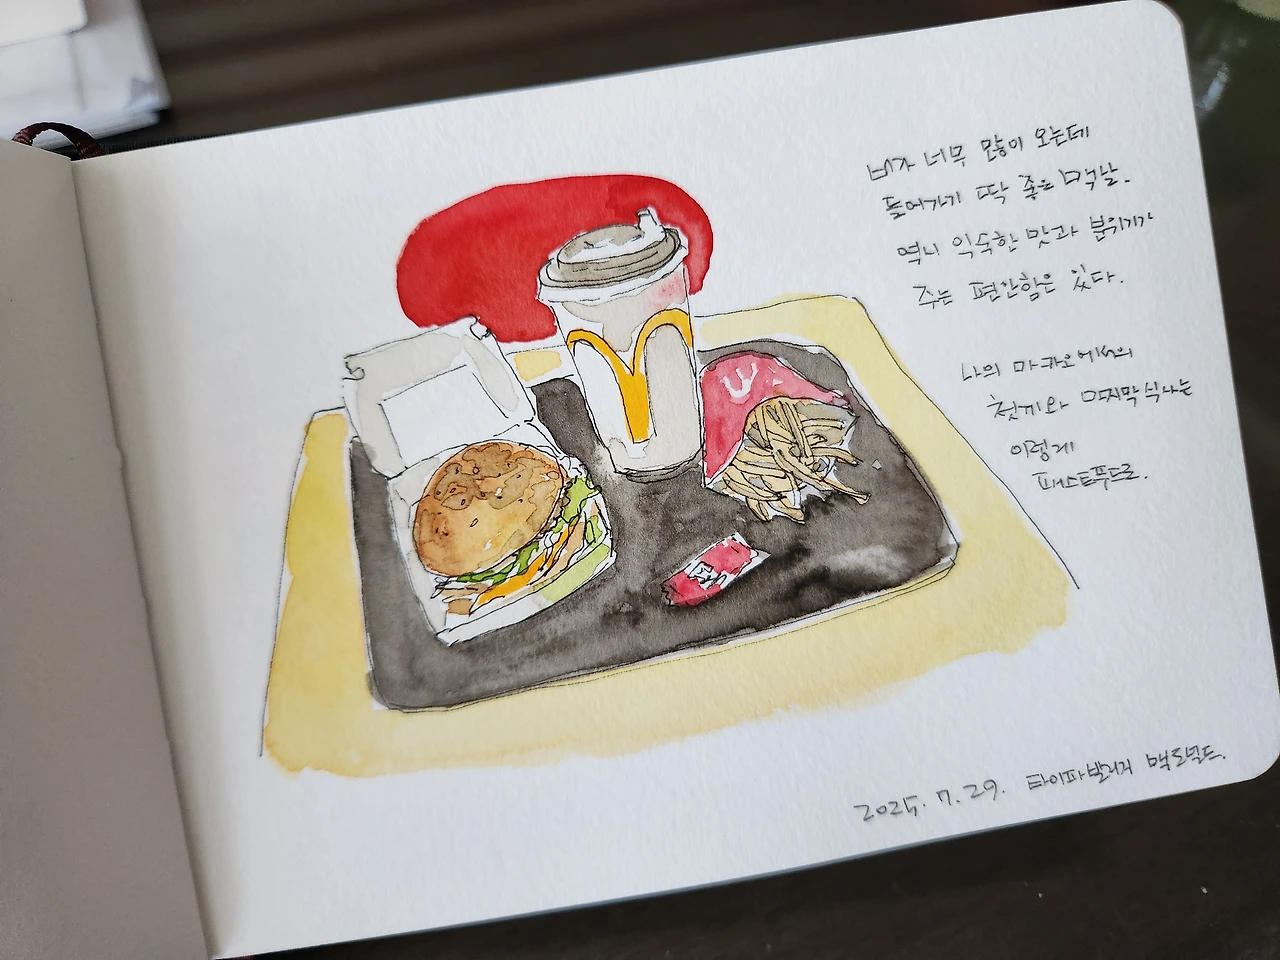 비가 너무 많이 오는데
들어가기 딱 좋은 맥날.
역시 익숙한 맛과 분위기가
주는 편안함은 있다.
나의 마카오에서의
첫끼와 마지막 식사는
이렇게
패스트푸드로.
2025. 7. 29. 타이파빌리지 맥도널드.